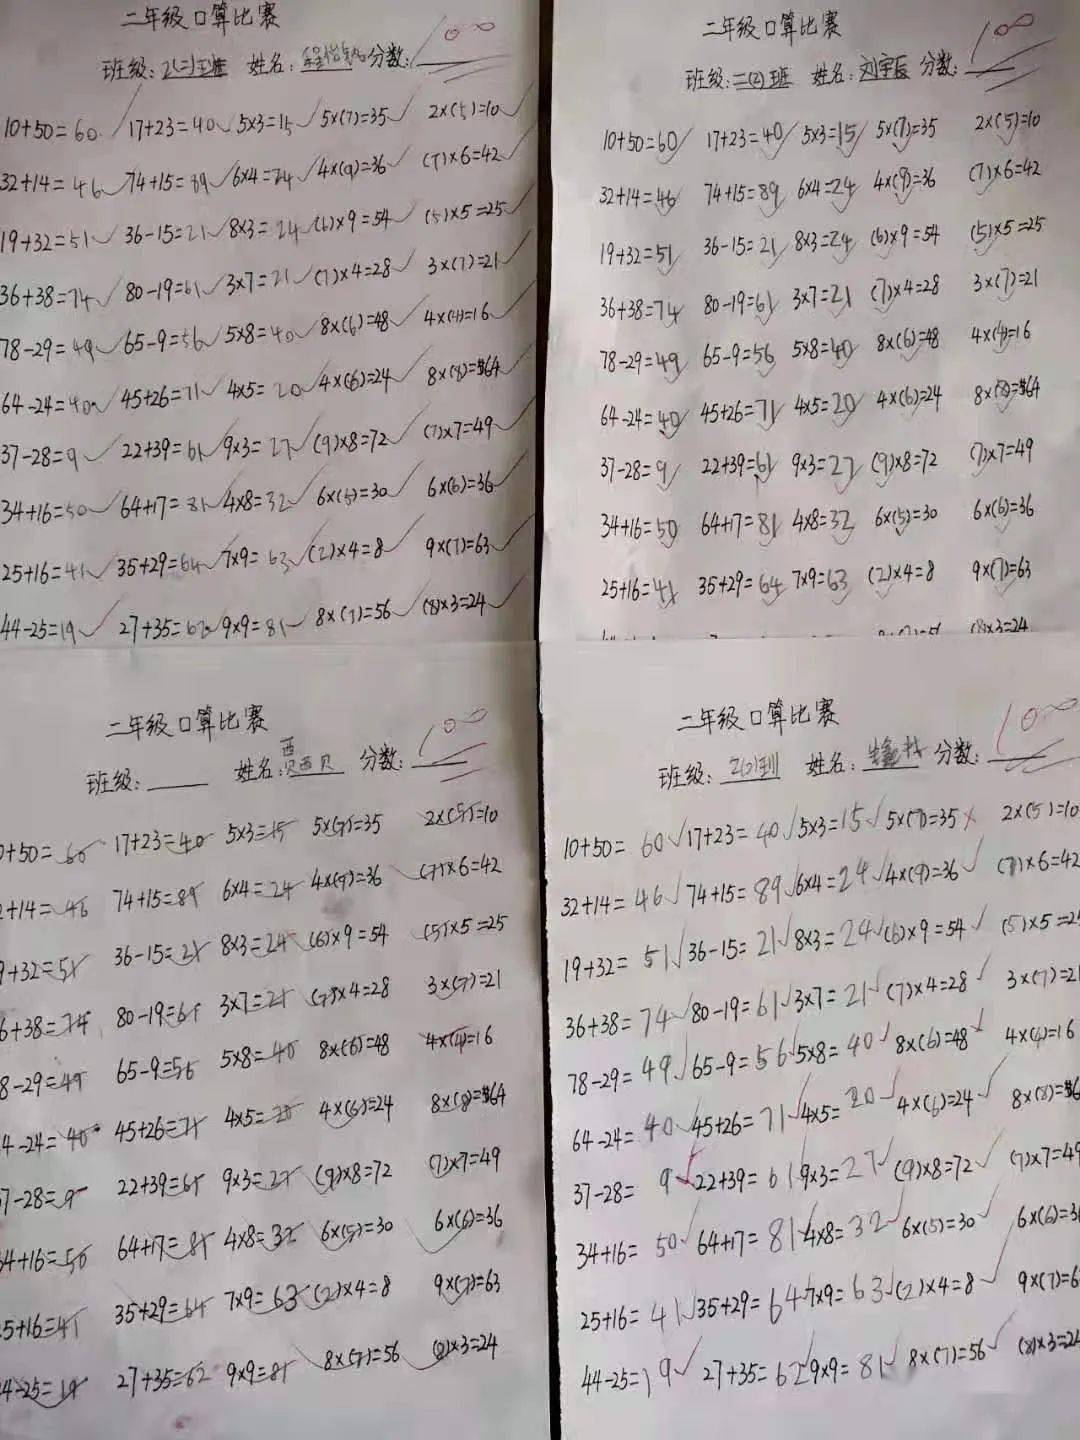 二年级口算比赛
班级:2(二)班 姓名: 分数: 100
10+50=60 17+23=40 5×3=15 5×(7)=35 2×(5)=10
32+14=46 74+15=89 6×4=24 4×(9)=36 (7)×6=42
19+32=51 36-15=21 8×3=24 (6)×9=54 (5)×5=25
36+38=74 80-19=61 3×7=21 (7)×4=28 3×(7)=21
78-29=49 65-9=56 5×8=40 8×(6)=48 4×(4)=16
64-24=40 45+26=71 4×5=20 4×(6)=24 8×(8)=64
37-28=9 22+39=61 9×3=27 (9)×8=72 (7)×7=49
34+16=50 64+17=81 4×8=32 6×(5)=30 6×(6)=36
25+16=41 35+29=64 7×9=63 (2)×4=8 9×(7)=63
44-25=19 27+35=62 9×9=81 8×(7)=56 (8)×3=24
二年级口算比赛
班级:二(2)班 姓名:刘宇辰 分数: 100
10+50=60 17+23=40 5×3=15 5×(7)=35 2×(5)=10
32+14=46 74+15=89 6×4=24 4×(9)=36 (7)×6=42
19+32=51 36-15=21 8×3=24 (6)×9=54 (5)×5=25
36+38=74 80-19=61 3×7=21 (7)×4=28 3×(7)=21
78-29=49 65-9=56 5×8=40 8×(6)=48 4×(4)=16
64-24=40 45+26=71 4×5=20 4×(6)=24 8×(8)=64
37-28=9 22+39=61 9×3=27 (9)×8=72 (7)×7=49
34+16=50 64+17=81 4×8=32 6×(5)=30 6×(6)=36
25+16=41 35+29=64 7×9=63 (2)×4=8 9×(7)=63
8×(7)=56 (8)×3=24
二年级口算比赛
班级: 姓名:贾西贝 分数: 100
0+50=60 17+23=40 5×3=15 5×(7)=35 2×(5)=10
2+14=46 74+15=89 6×4=24 4×(9)=36 (7)×6=42
9+32=51 36-15=21 8×3=24 (6)×9=54 (5)×5=25
6+38=74 80-19=61 3×7=21 (7)×4=28 3×(7)=21
8-29=49 65-9=56 5×8=40 8×(6)=48 4×(4)=16
4-24=40 45+26=71 4×5=20 4×(6)=24 8×(8)=64
37-28=9 22+39=61 9×3=27 (9)×8=72 (7)×7=49
34+16=50 64+17=81 4×8=32 6×(5)=30 6×(6)=36
25+16=41 35+29=64 7×9=63 (2)×4=8 9×(7)=63
44-25=19 27+35=62 9×9=81 8×(7)=56 (8)×3=24
二年级口算比赛
班级:2(2)班 姓名: 分数: 100
10+50=60 17+23=40 5×3=15 5×(7)=35 2×(5)=10
32+14=46 74+15=89 6×4=24 4×(9)=36 (7)×6=42
19+32=51 36-15=21 8×3=24 (6)×9=54 (5)×5=25
36+38=74 80-19=61 3×7=21 (7)×4=28 3×(7)=21
78-29=49 65-9=56 5×8=40 8×(6)=48 4×(4)=16
64-24=40 45+26=71 4×5=20 4×(6)=24 8×(8)=6
37-28=9 22+39=61 9×3=27 (9)×8=72 (7)×7=49
34+16=50 64+17=81 4×8=32 6×(5)=30 6×(6)=36
25+16=41 35+29=64 7×9=63 (2)×4=8 9×(7)=6
44-25=19 27+35=62 9×9=81 8×(7)=56 (8)×3=24